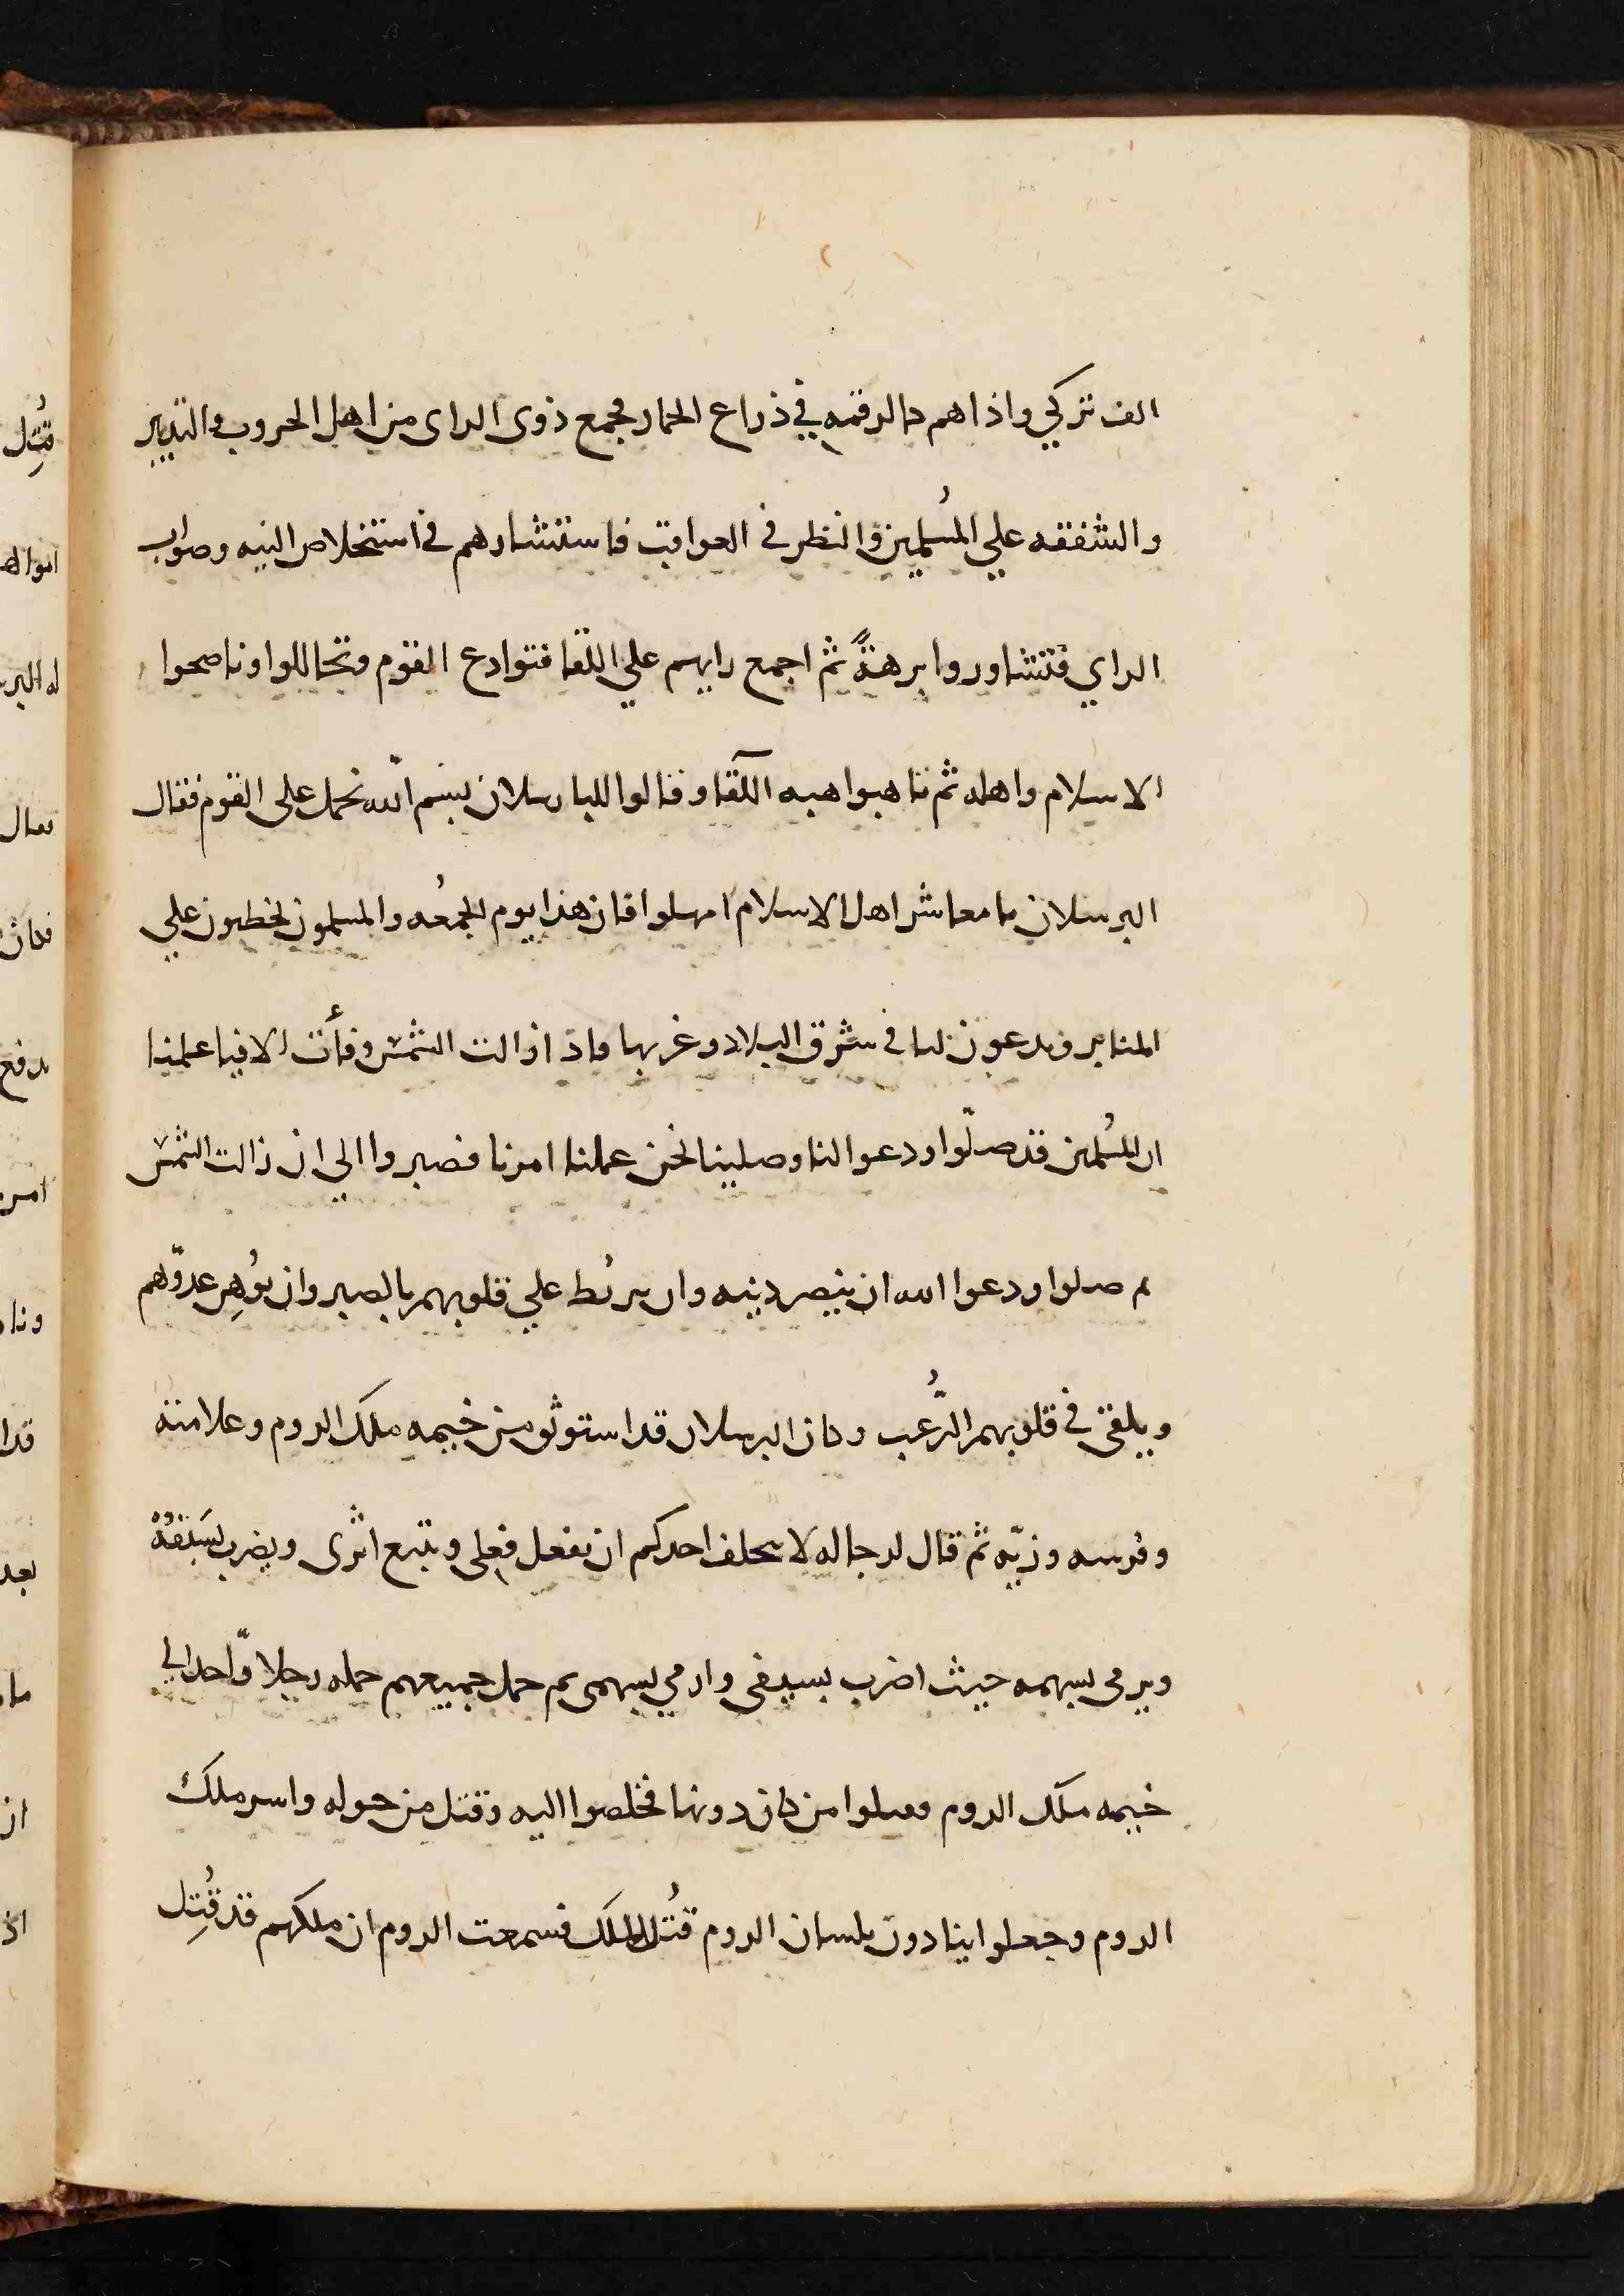 الف تركي واذا هم كالرقمه في ذراع الحمار فجمع ذوى الراى من اهل الحروب والتدبير
والشفقه علي المُسلمين والنظر فى العواقب فاستشارهم فى استخلاص النيه وصواب
الراي فتشاوروا برهةً ثم اجمع رايهم علي اللقا فتوادع القوم وتحاللوا وناصحوا
الاسلام واهله ثم تاهبوا اهبه اللقا وقالوا للبارسلان بسم الله نحمل على القوم فقال
البرسلان يا معاشر اهل الاسلام امهلوا فان هذا يوم الجمعُه والمسلمون يخطبون علي
المنابر ويدعون لنا فى شرق البلاد وغربها فاذا زالت الشمس وفأت الافيا علمنا
ان المُسلمين قد صلّوا ودعوا لنا وصلينا نحن عملنا امرنا فصبروا الي ان زالت الشمس
ثم صلوا ودعوا الله ان ينصر دينه وان يربُط علي قلوبهم بالصبر وان يُوهِن عدوّهم
ويلقى فى قلوبهم الرُّعب وكان البرسلان قد استوثق من خيمه ملك الروم وعلامته
وفرسه وزيّه ثم قال لرجاله لا يتخلف احدكم ان يفعل فعلى ويتبع اثرى ويضرب بسَيفهُ
ويرمى بسهمه حيث اضرب بسيفى وارمي بسهمى ثم حمل جميعهم حمله رجلا وّاحدا الى
خيمه ملك الروم فقتلوا من كان دونها فخلصوا اليه وقتل من حوله واسر ملك
الروم وجعلوا ينادون بلسان الروم قُتل الملك فسمعت الروم ان ملكهم قد قُتِل